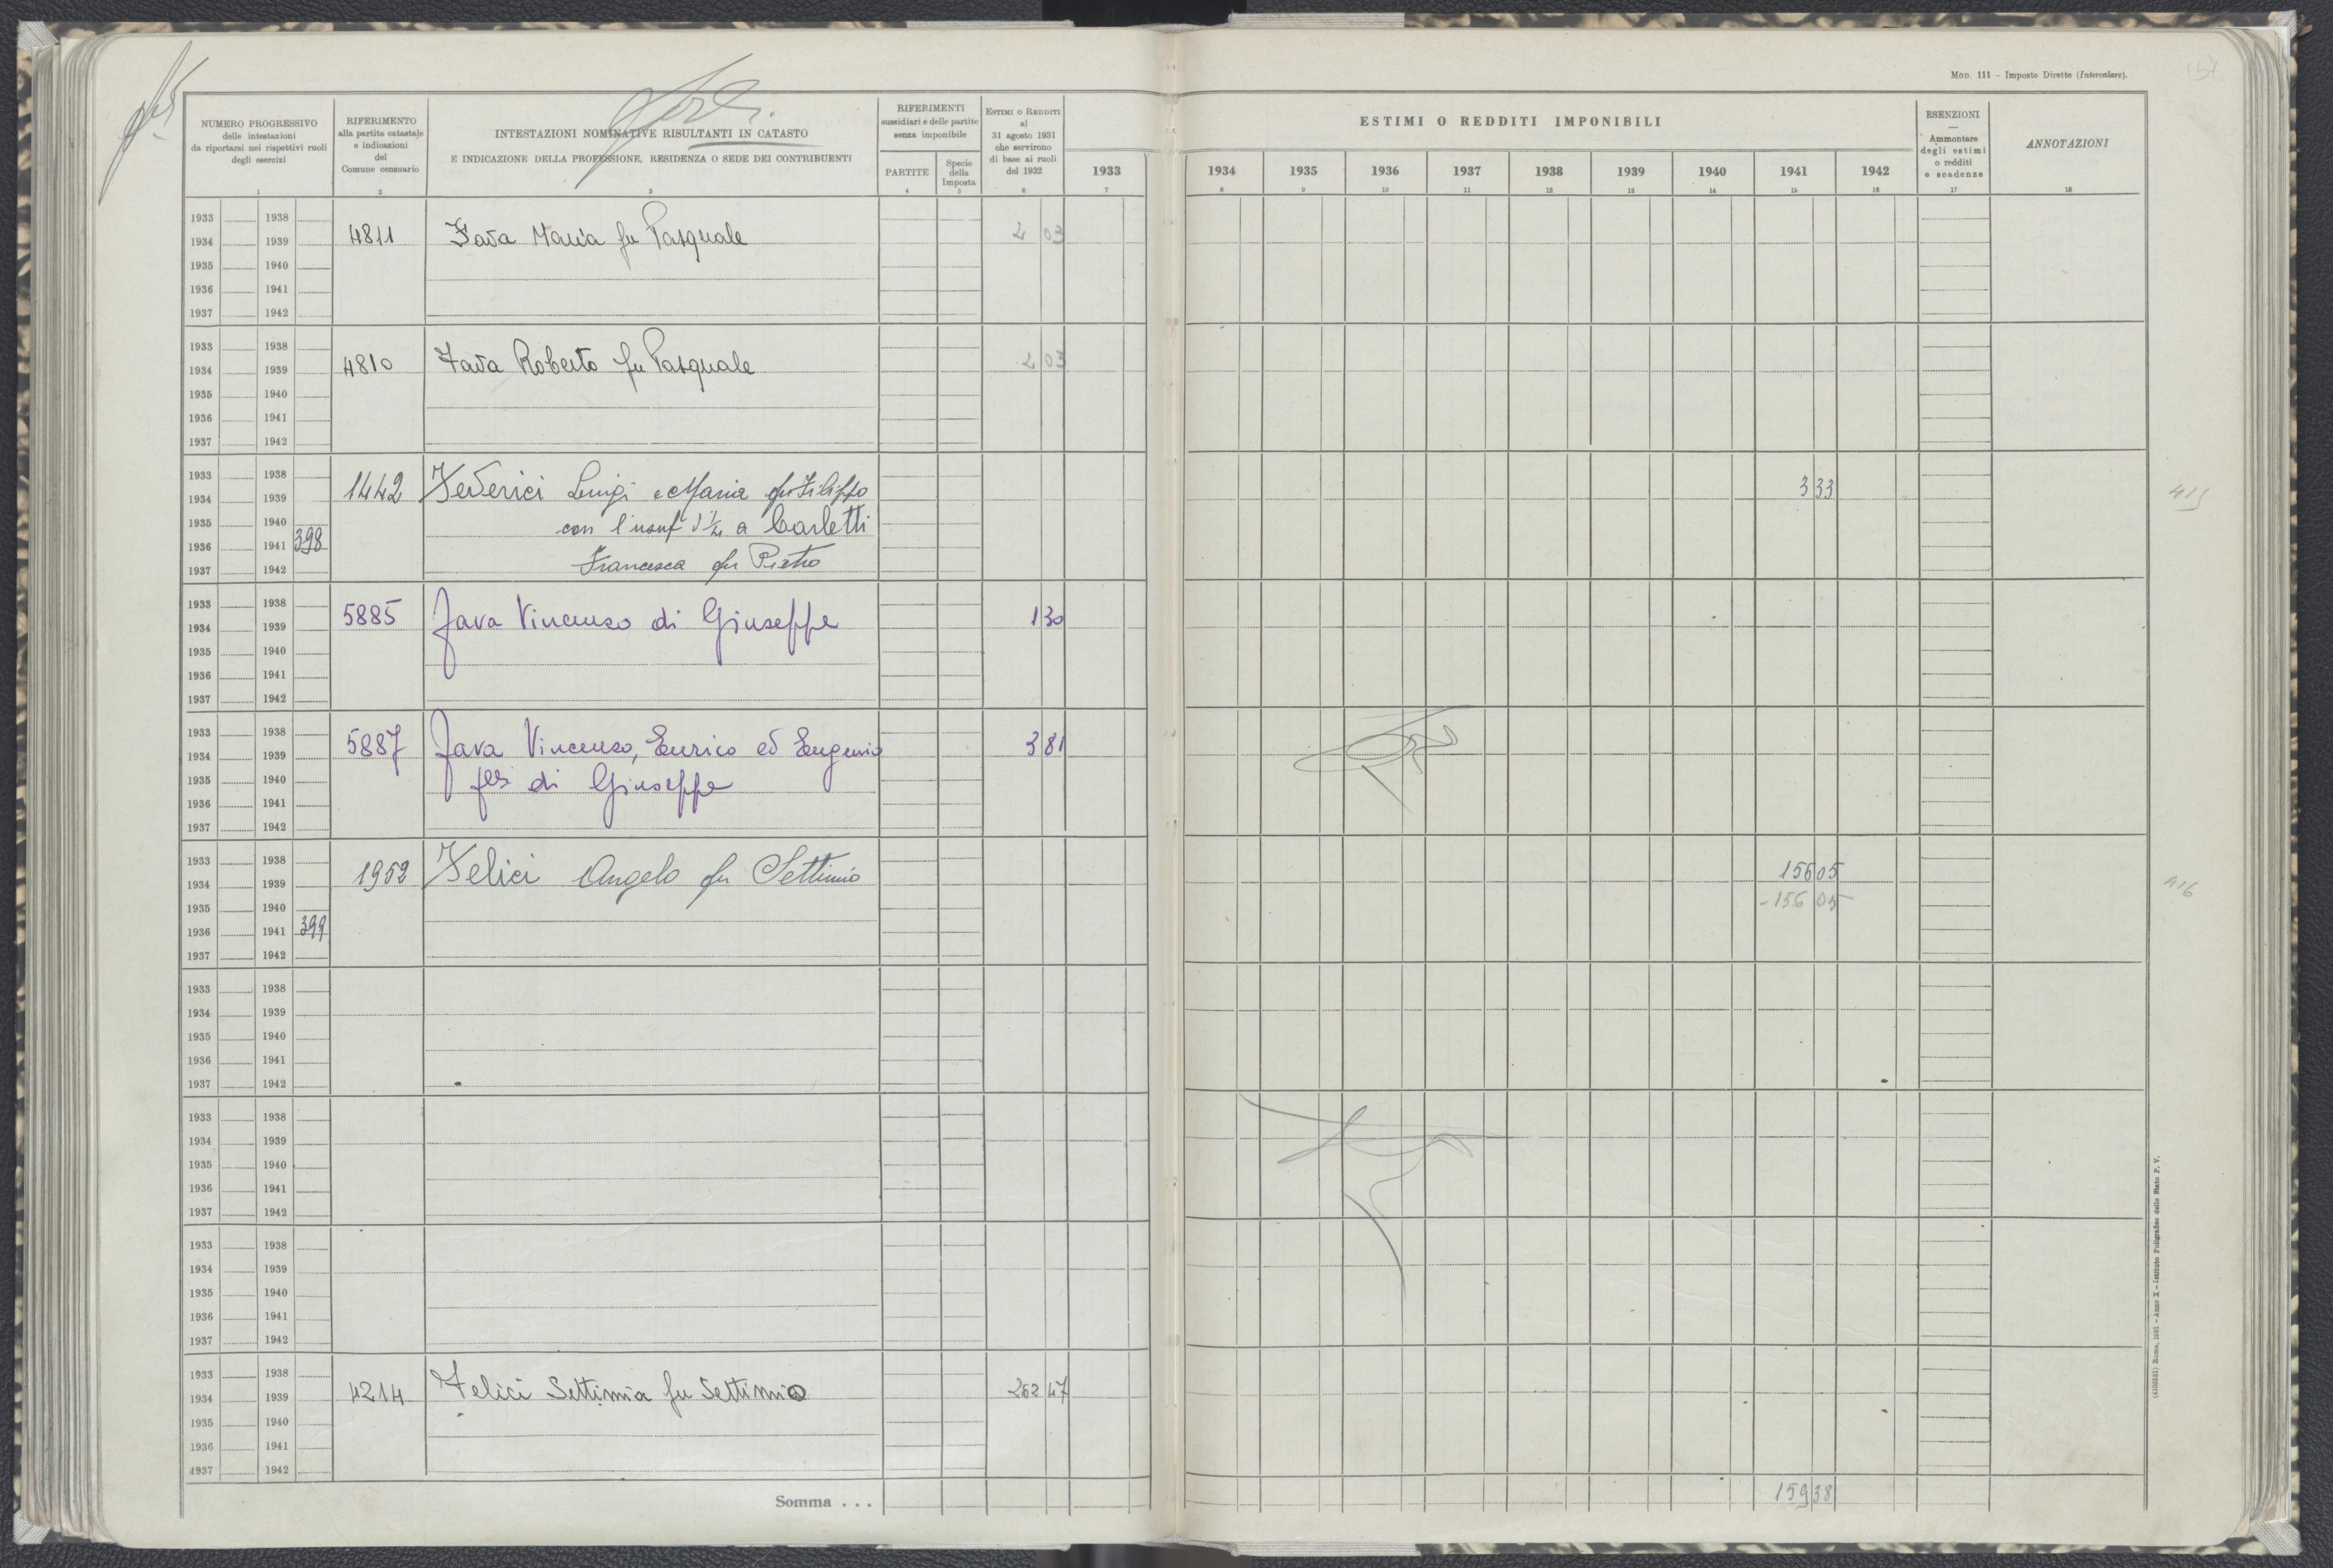 Mod. 111 – Imposte Dirette (Intercalare).
157
NUMERO PROGRESSIVO
delle intestazioni
da riportarsi nei rispettivi ruoli
degli esercizi
RIFERIMENTO
alla partita catastale
e indicazioni
del
Comune censuario
INTESTAZIONI NOMINATIVE RISULTANTI IN CATASTO
E INDICAZIONE DELLA PROFESSIONE, RESIDENZA O SEDE DEI CONTRIBUENTI
RIFERIMENTI
sussidiari e delle partite
senza imponibile
PARTITE
Specie
della
Imposta
ESTIMI O REDDITI
al
31 agosto 1931
che servirono
di base ai ruoli
del 1932
ESTIMI O REDDITI IMPONIBILI
1933 1934 1935 1936 1937 1938 1939 1940 1941 1942
ESENZIONI
—
Ammontare
degli estimi
o redditi
e scadenze
ANNOTAZIONI
1 2 3 4 5 6 7 8 9 10 11 12 13 14 15 16 17 18
1933 1938
1934 1939 4811 Fava Maria fu Pasquale 2 03
1935 1940
1936 1941
1937 1942
1933 1938
1934 1939 4810 Fava Roberto fu Pasquale 2 03
1935 1940
1936 1941
1937 1942
1933 1938
1934 1939 1442 Federici Luigi e Maria fu Filippo 3 33 415
1935 1940 con l'usuf d'½ a Carletti
1936 1941 398
1937 1942 Francesca fu Pietro
1933 1938
1934 1939 5885 Fava Vincenzo di Giuseppe 1 30
1935 1940
1936 1941
1937 1942
1933 1938
1934 1939 5887 Fava Vincenzo, Enrico ed Eugenio 3 81
1935 1940 flli di Giuseppe
1936 1941
1937 1942
1933 1938
1934 1939 1952 Felici Angelo fu Settimio 156 05 416
1935 1940 -156 05
1936 1941 399
1937 1942
1933 1938
1934 1939
1935 1940
1936 1941
1937 1942
1933 1938
1934 1939
1935 1940
1936 1941
1937 1942
1933 1938
1934 1939
1935 1940
1936 1941
1937 1942
1933 1938
1934 1939 4214 Felici Settimia fu Settimio 262 47
1935 1940
1936 1941
1937 1942
Somma . . . 159 38
Roma, 1931 – Anno X – Istituto Poligrafico dello Stato P. V.